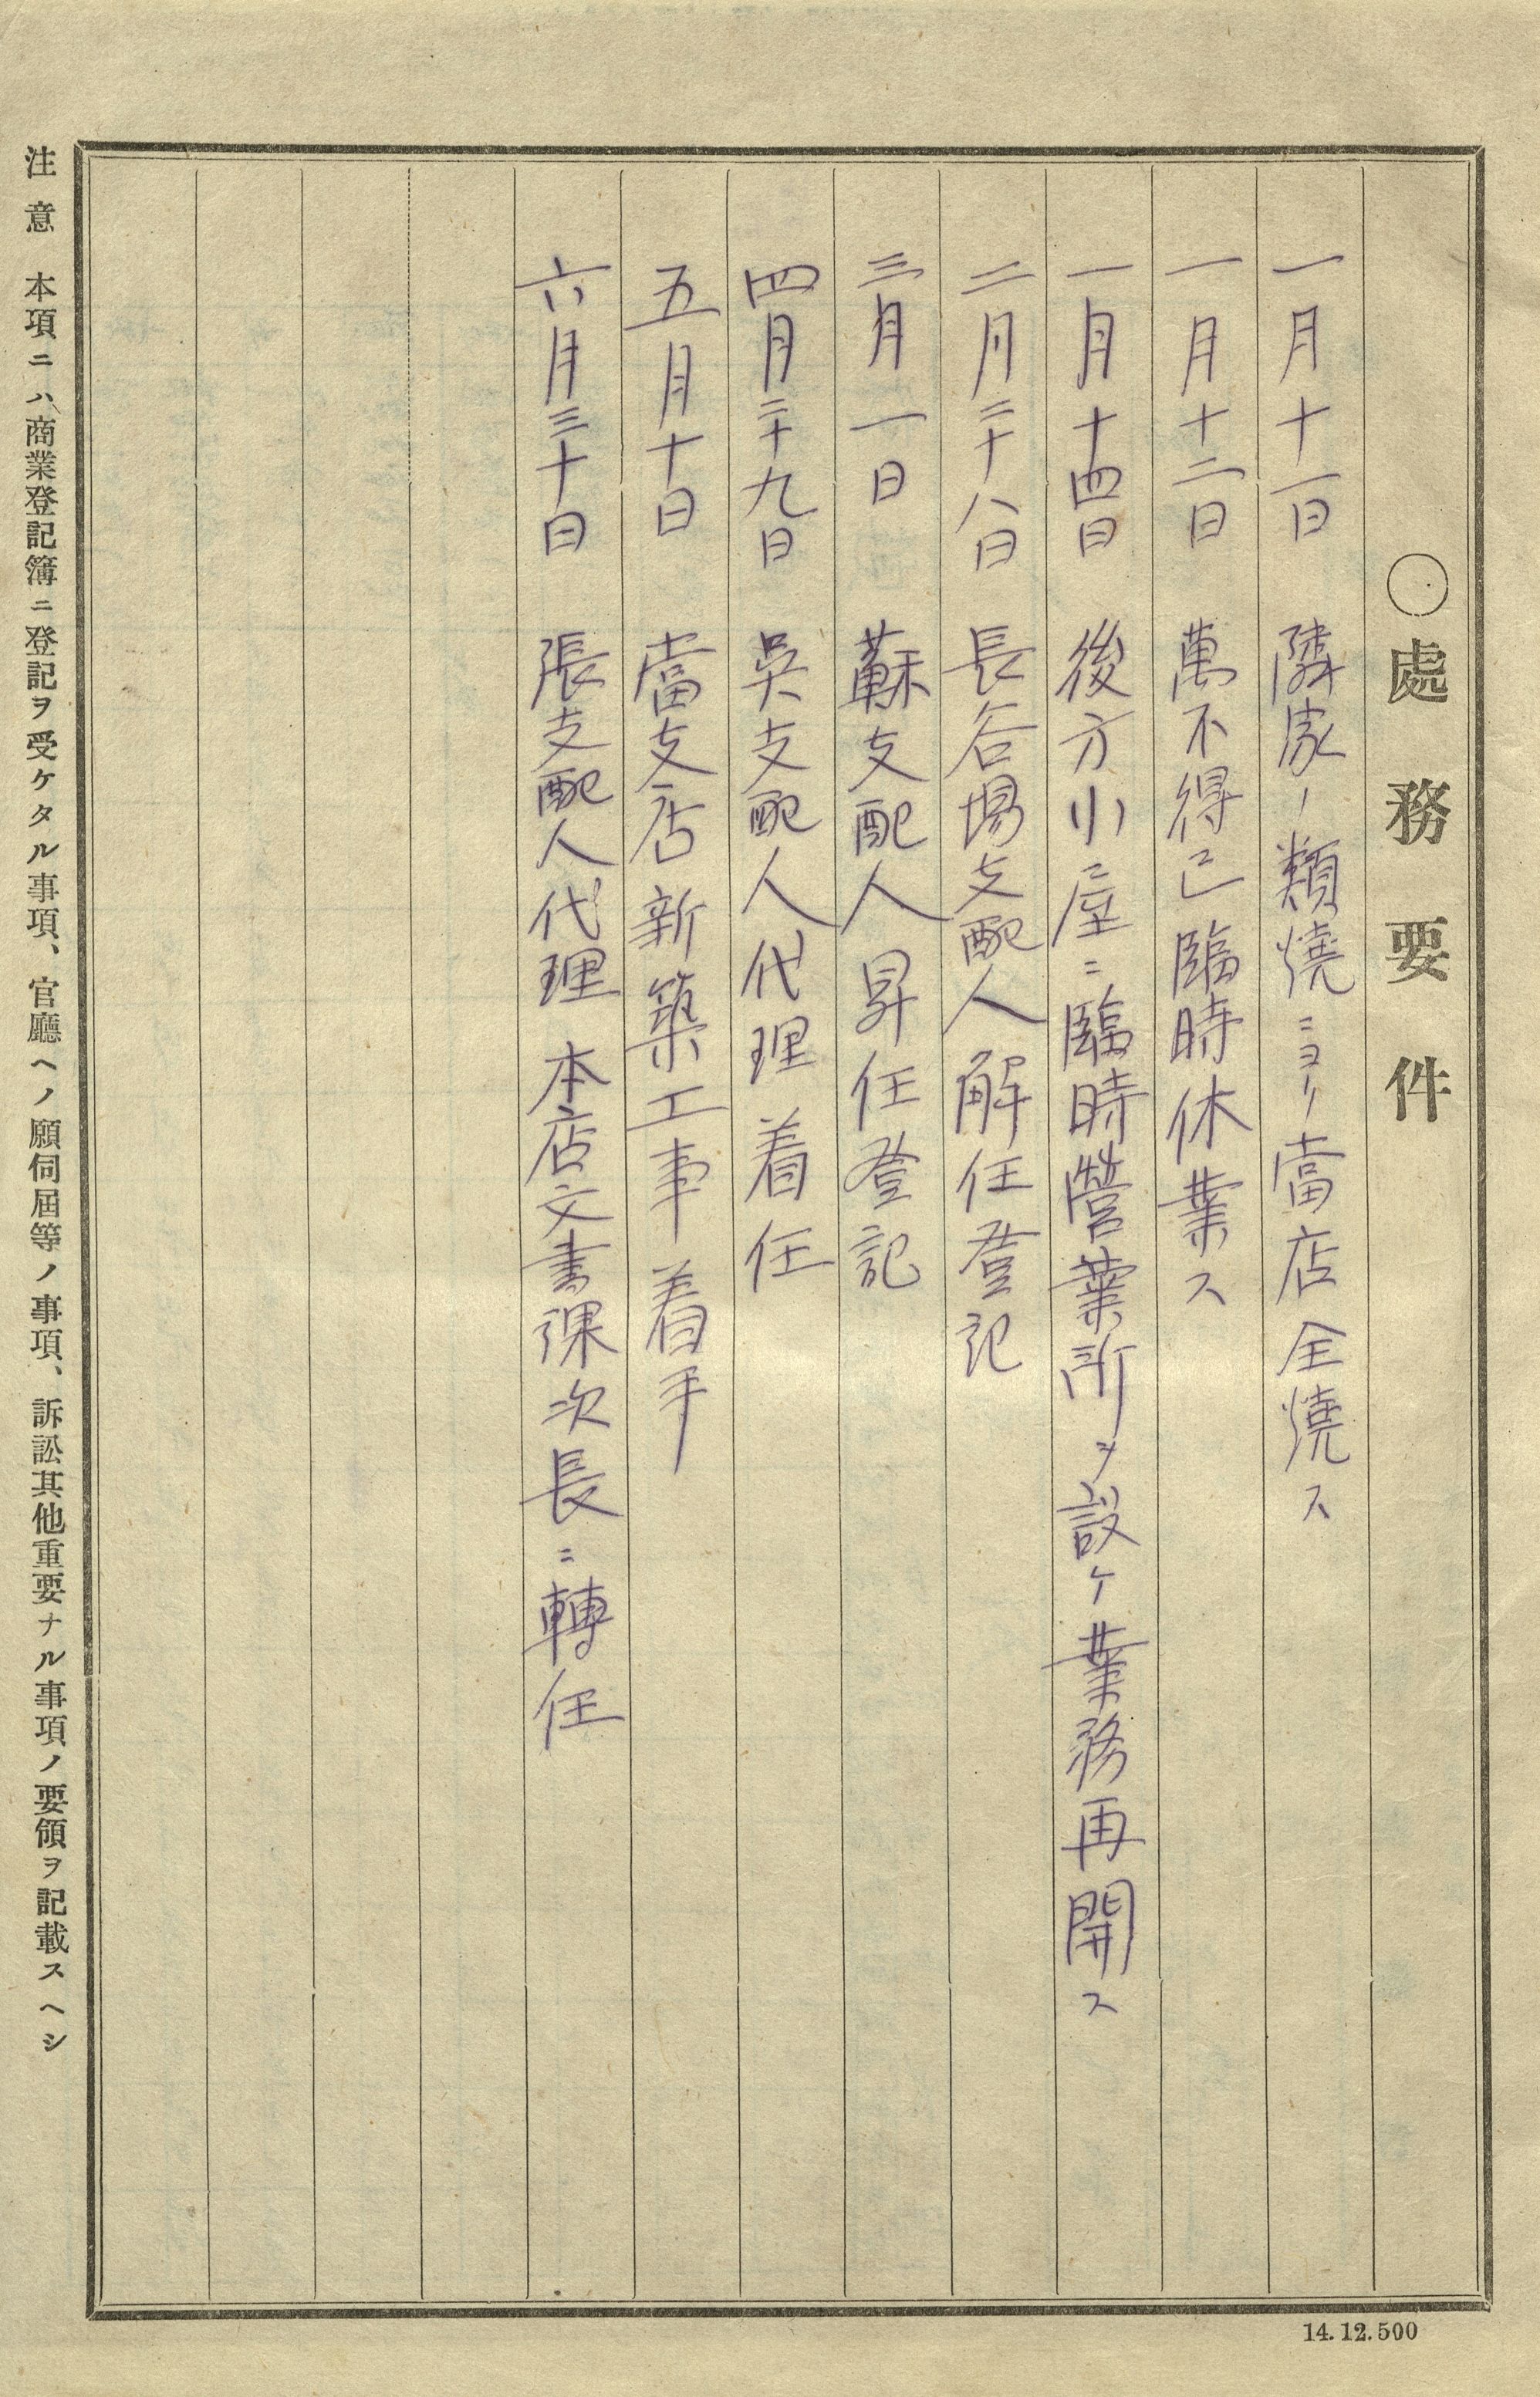 〇處務要件
一月十一日 隣家ノ類燒ニヨリ當店全燒ス
一月十二日 萬不得已臨時休業ス
一月十四日 後方小屋ニ臨時營業所ヲ設ケ業務再開ス
二月二十八日 長谷場支配人解任登記
三月一日 蘇支配人昇任登記
四月二十九日 吳支配人代理着任
五月十日 當支店新築工事着手
六月三十日 張支配人代理本店文書課次長ニ轉任
注意 本項ニハ商業登記簿ニ登記ヲ受ケタル事項、官廳ヘノ願伺屆等ノ事項、訴訟其他重要ナル事項ノ要領ヲ記載スヘシ
14.12.500